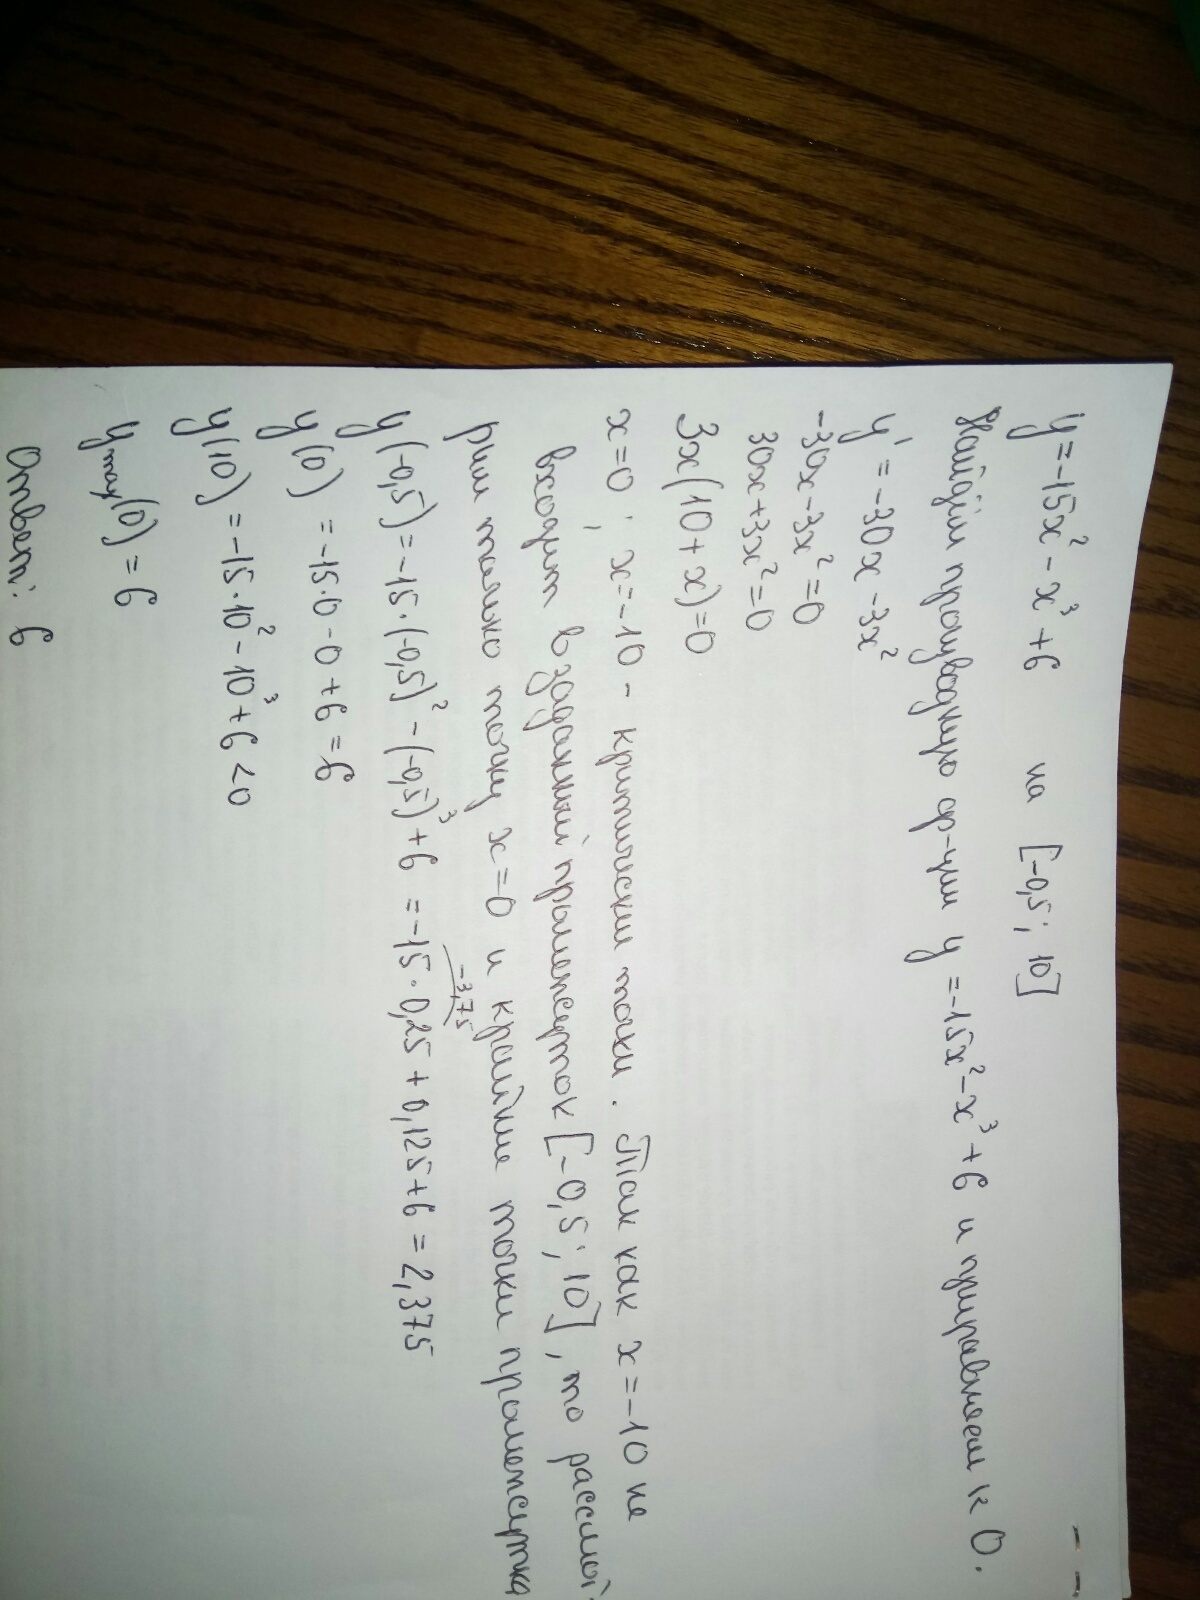 y=-15x²-x³+6 на [-0,5; 10]
Найдём производную ф-ции y=-15x²-x³+6 и приравняем к 0.
y'=-30x-3x²
-30x-3x²=0
30x+3x²=0
3x(10+x)=0
x=0; x=-10 - критически точки. Так как x=-10 не
входит в заданный промежуток [-0,5; 10], то рассмот-
рим только точку x=0 и крайние точки промежутка
-3,75
y(-0,5)=-15·(-0,5)²-(-0,5)³+6=-15·0,25+0,125+6=2,375
y(0)=-15·0-0+6=6
y(10)=-15·10²-10³+6<0
y max(0)=6
Ответ: 6